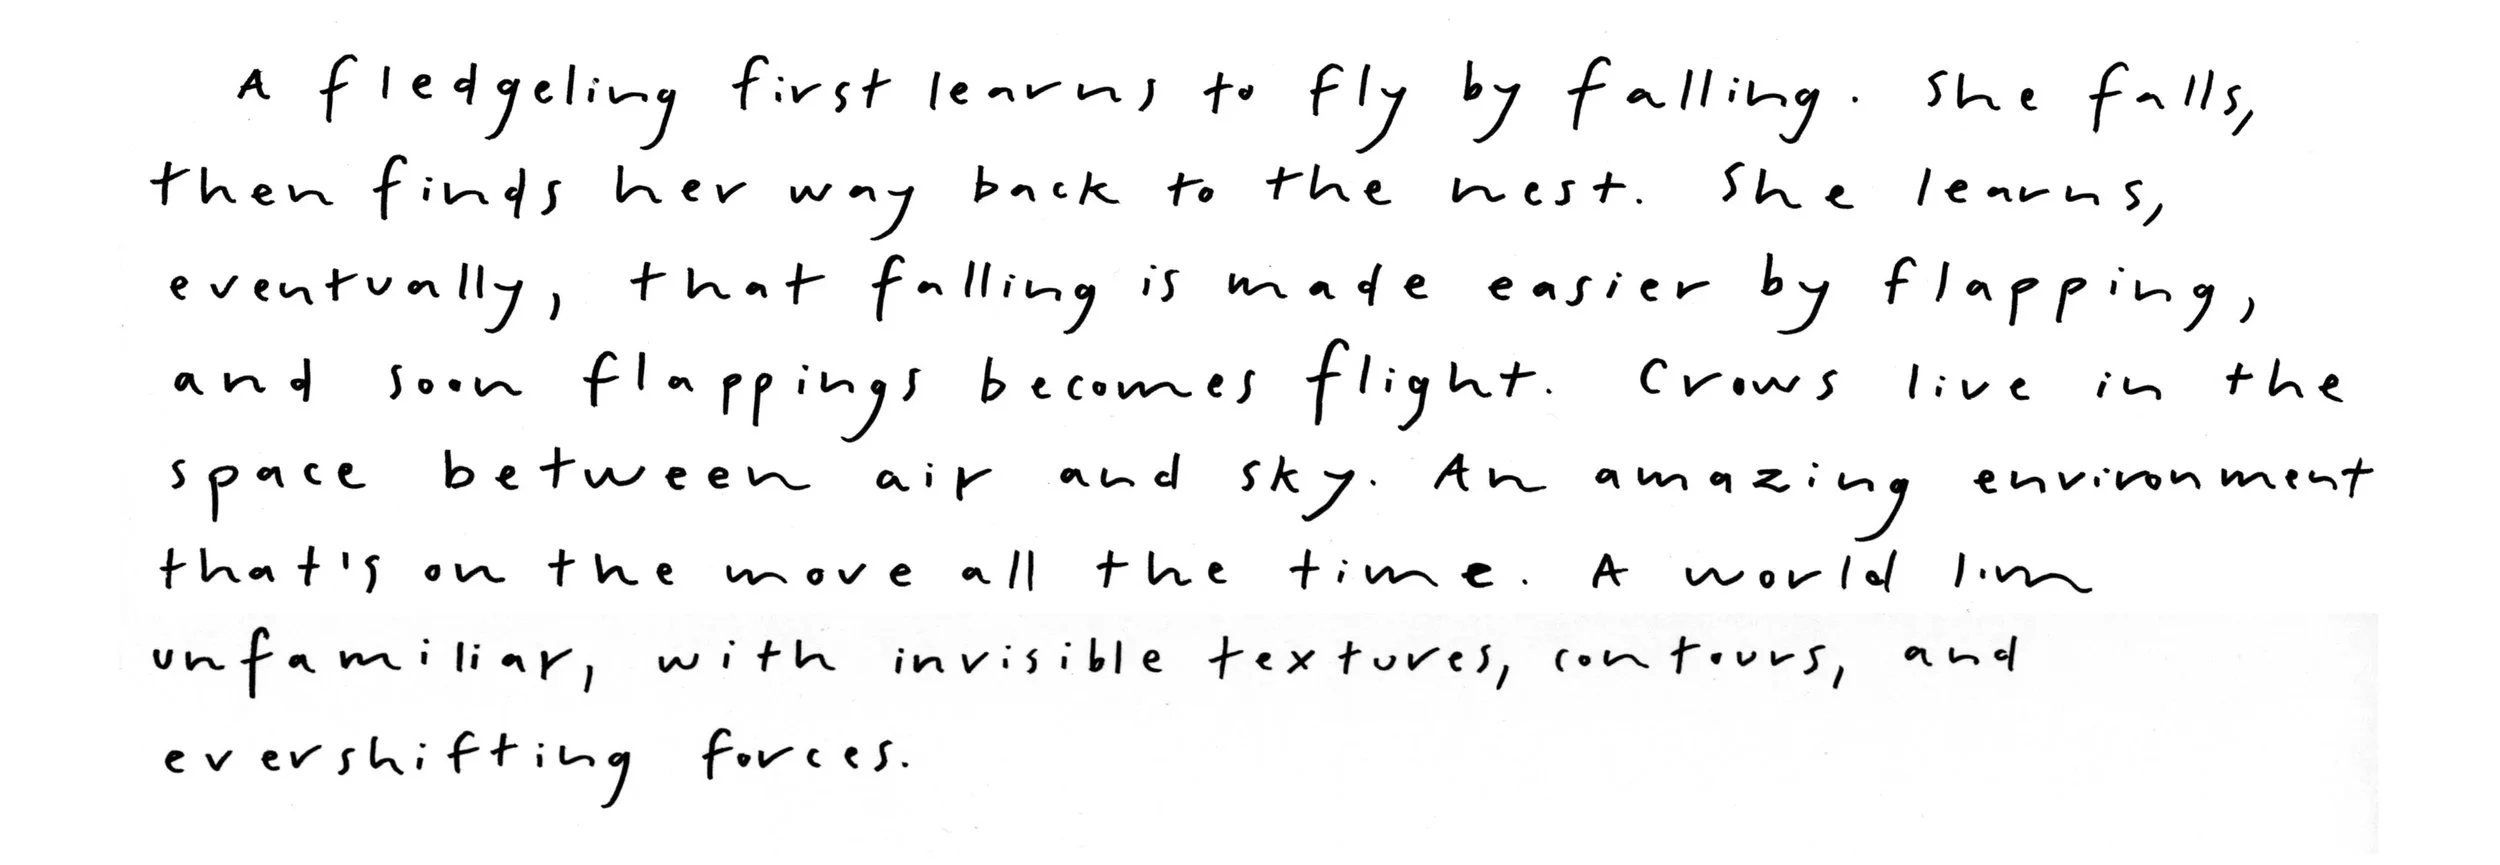 A fledgeling first learns to fly by falling. She falls,
then finds her way back to the nest. She learns,
eventually, that falling is made easier by flapping,
and soon flappings becomes flight. Crows live in the
space between air and sky. An amazing environment
that's on the move all the time. A world I'm
unfamiliar, with invisible textures, contours, and
evershifting forces.